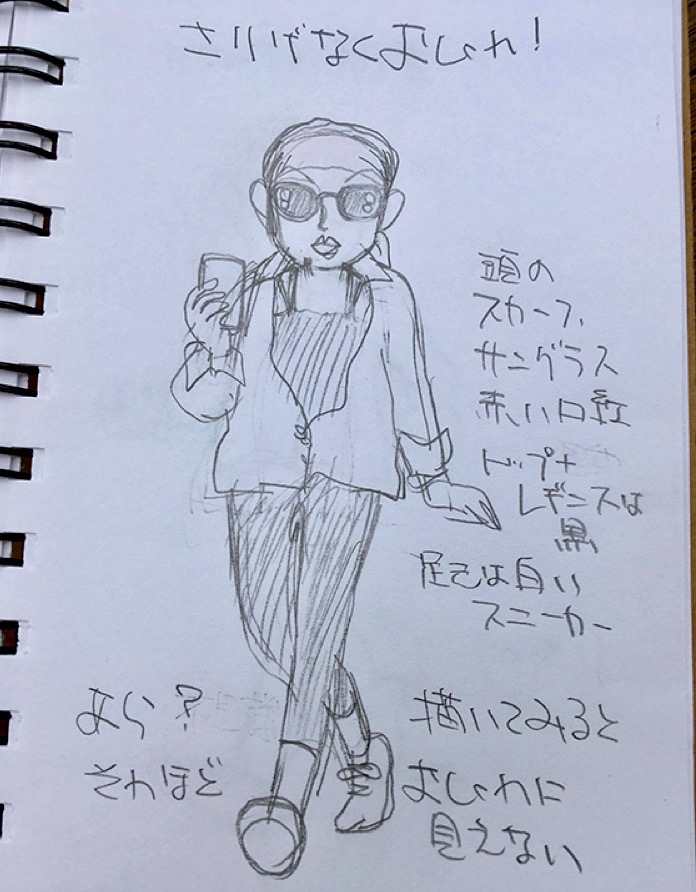 さりげなくおしゃれ！
頭の
スカーフ、
サングラス
赤い口紅
トップ＋
レギンスは
黒
足元は白い
スニーカー
あら？
描いてみると
それほど
おしゃれに
見えない